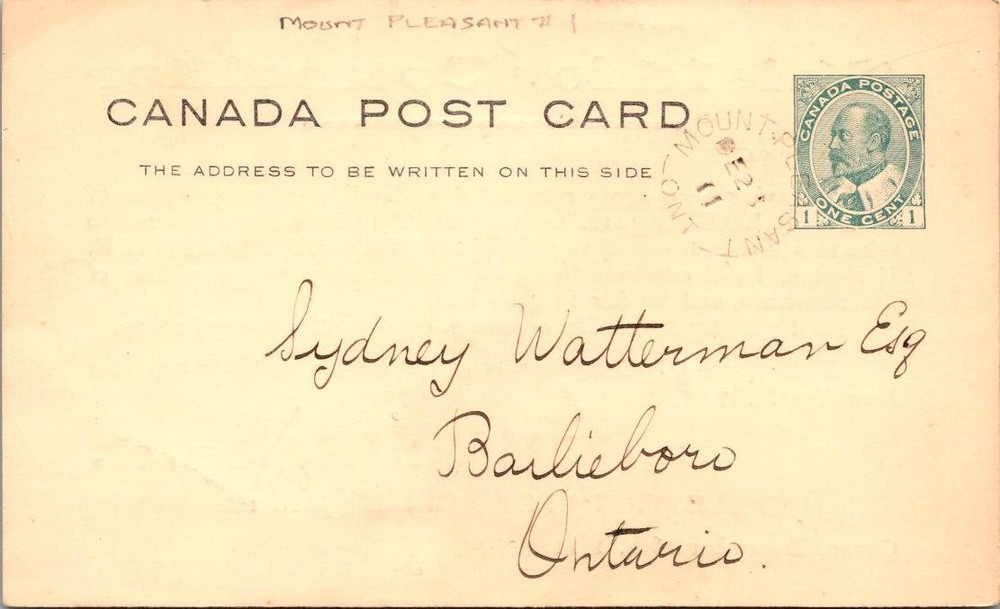 MOUNT PLEASANT # 1
CANADA POST CARD
THE ADDRESS TO BE WRITTEN ON THIS SIDE
CANADA POSTAGE
1 ONE CENT 1
MOUNT-PLEASANT
DE 2
11
ONT
Sydney Watterman Esq
Bailieboro
Ontario.